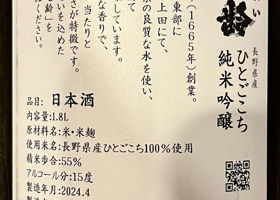 い
齢
長野県産
ひとごこち
純米吟醸
(1665年)創業。
東部に
上田にて、
泉の良質な水を使い、
しています。
な香りで、
当たりと
さが特徴です。
いを込めた
齢」を
ださい。
品目: 日本酒
内容量: 1.8L
原材料名: 米・米麹
使用米名: 長野県産ひとごこち100%使用
精米歩合: 55%
アルコール分: 15度
製造年月: 2024.4